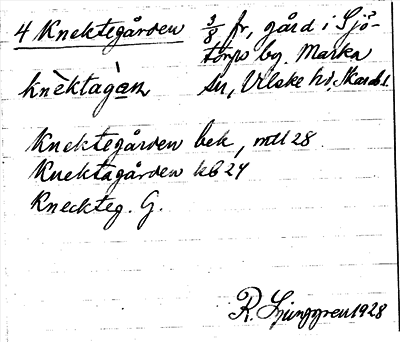 4 Knektegården 3/8 fr, gård i Sjö-
torps by. Marka
knè̀ktagàn sn, Vilske hd, Skarab. l.
Knektegården bek, mtl 28
Knektagården kb 24
Kneckteg. G.
R. Ljunggren 1928